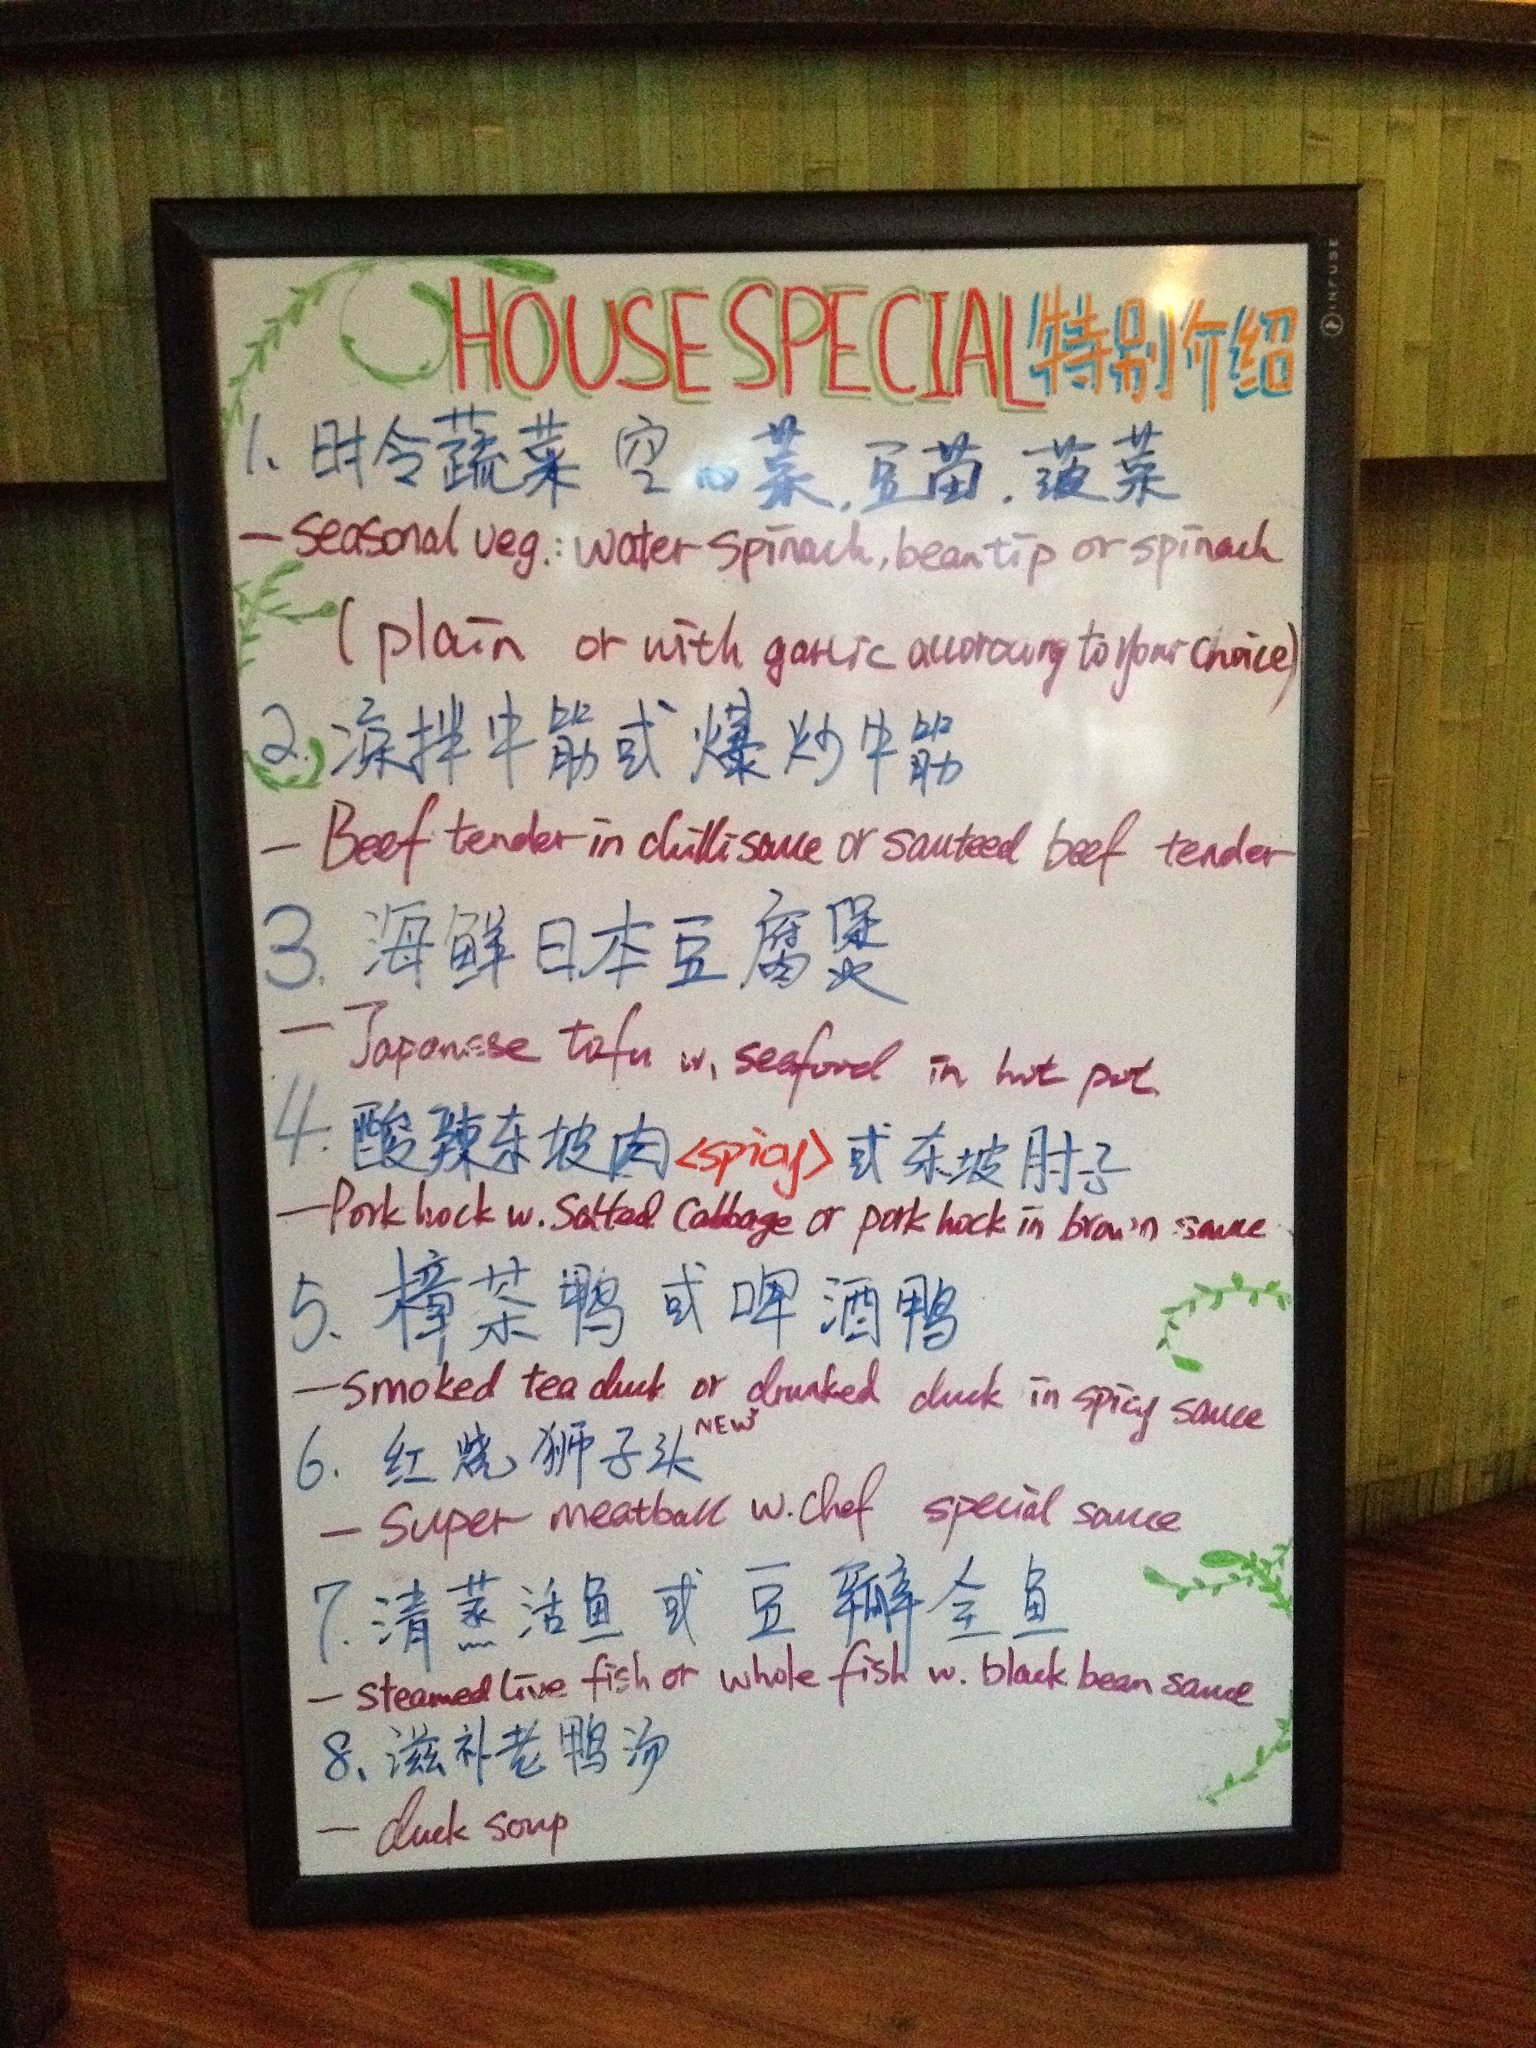 HOUSE SPECIAL 特别介绍
INFUSE
1、时令蔬菜 空心菜,豆苗,菠菜
- seasonal veg.: water spinach, bean tip or spinach
(plain or with garlic according to your choice)
2. 凉拌牛筋或爆炒牛筋
- Beef tender in chilli sauce or sauteed beef tender
3. 海鲜日本豆腐煲
- Japanese tofu w. seafood in hot pot.
4. 酸辣东坡肉 <spicy> 或东坡肘子
- Pork hock w. Salted Cabbage or pork hock in brown sauce.
5、樟茶鸭或啤酒鸭
- smoked tea duck or drunked duck in spicy sauce
6. 红烧狮子头 NEW
- super meatball w. chef special sauce
7. 清蒸活鱼或豆瓣全鱼
- steamed live fish or whole fish w. black bean sauce
8、滋补老鸭汤
- duck soup